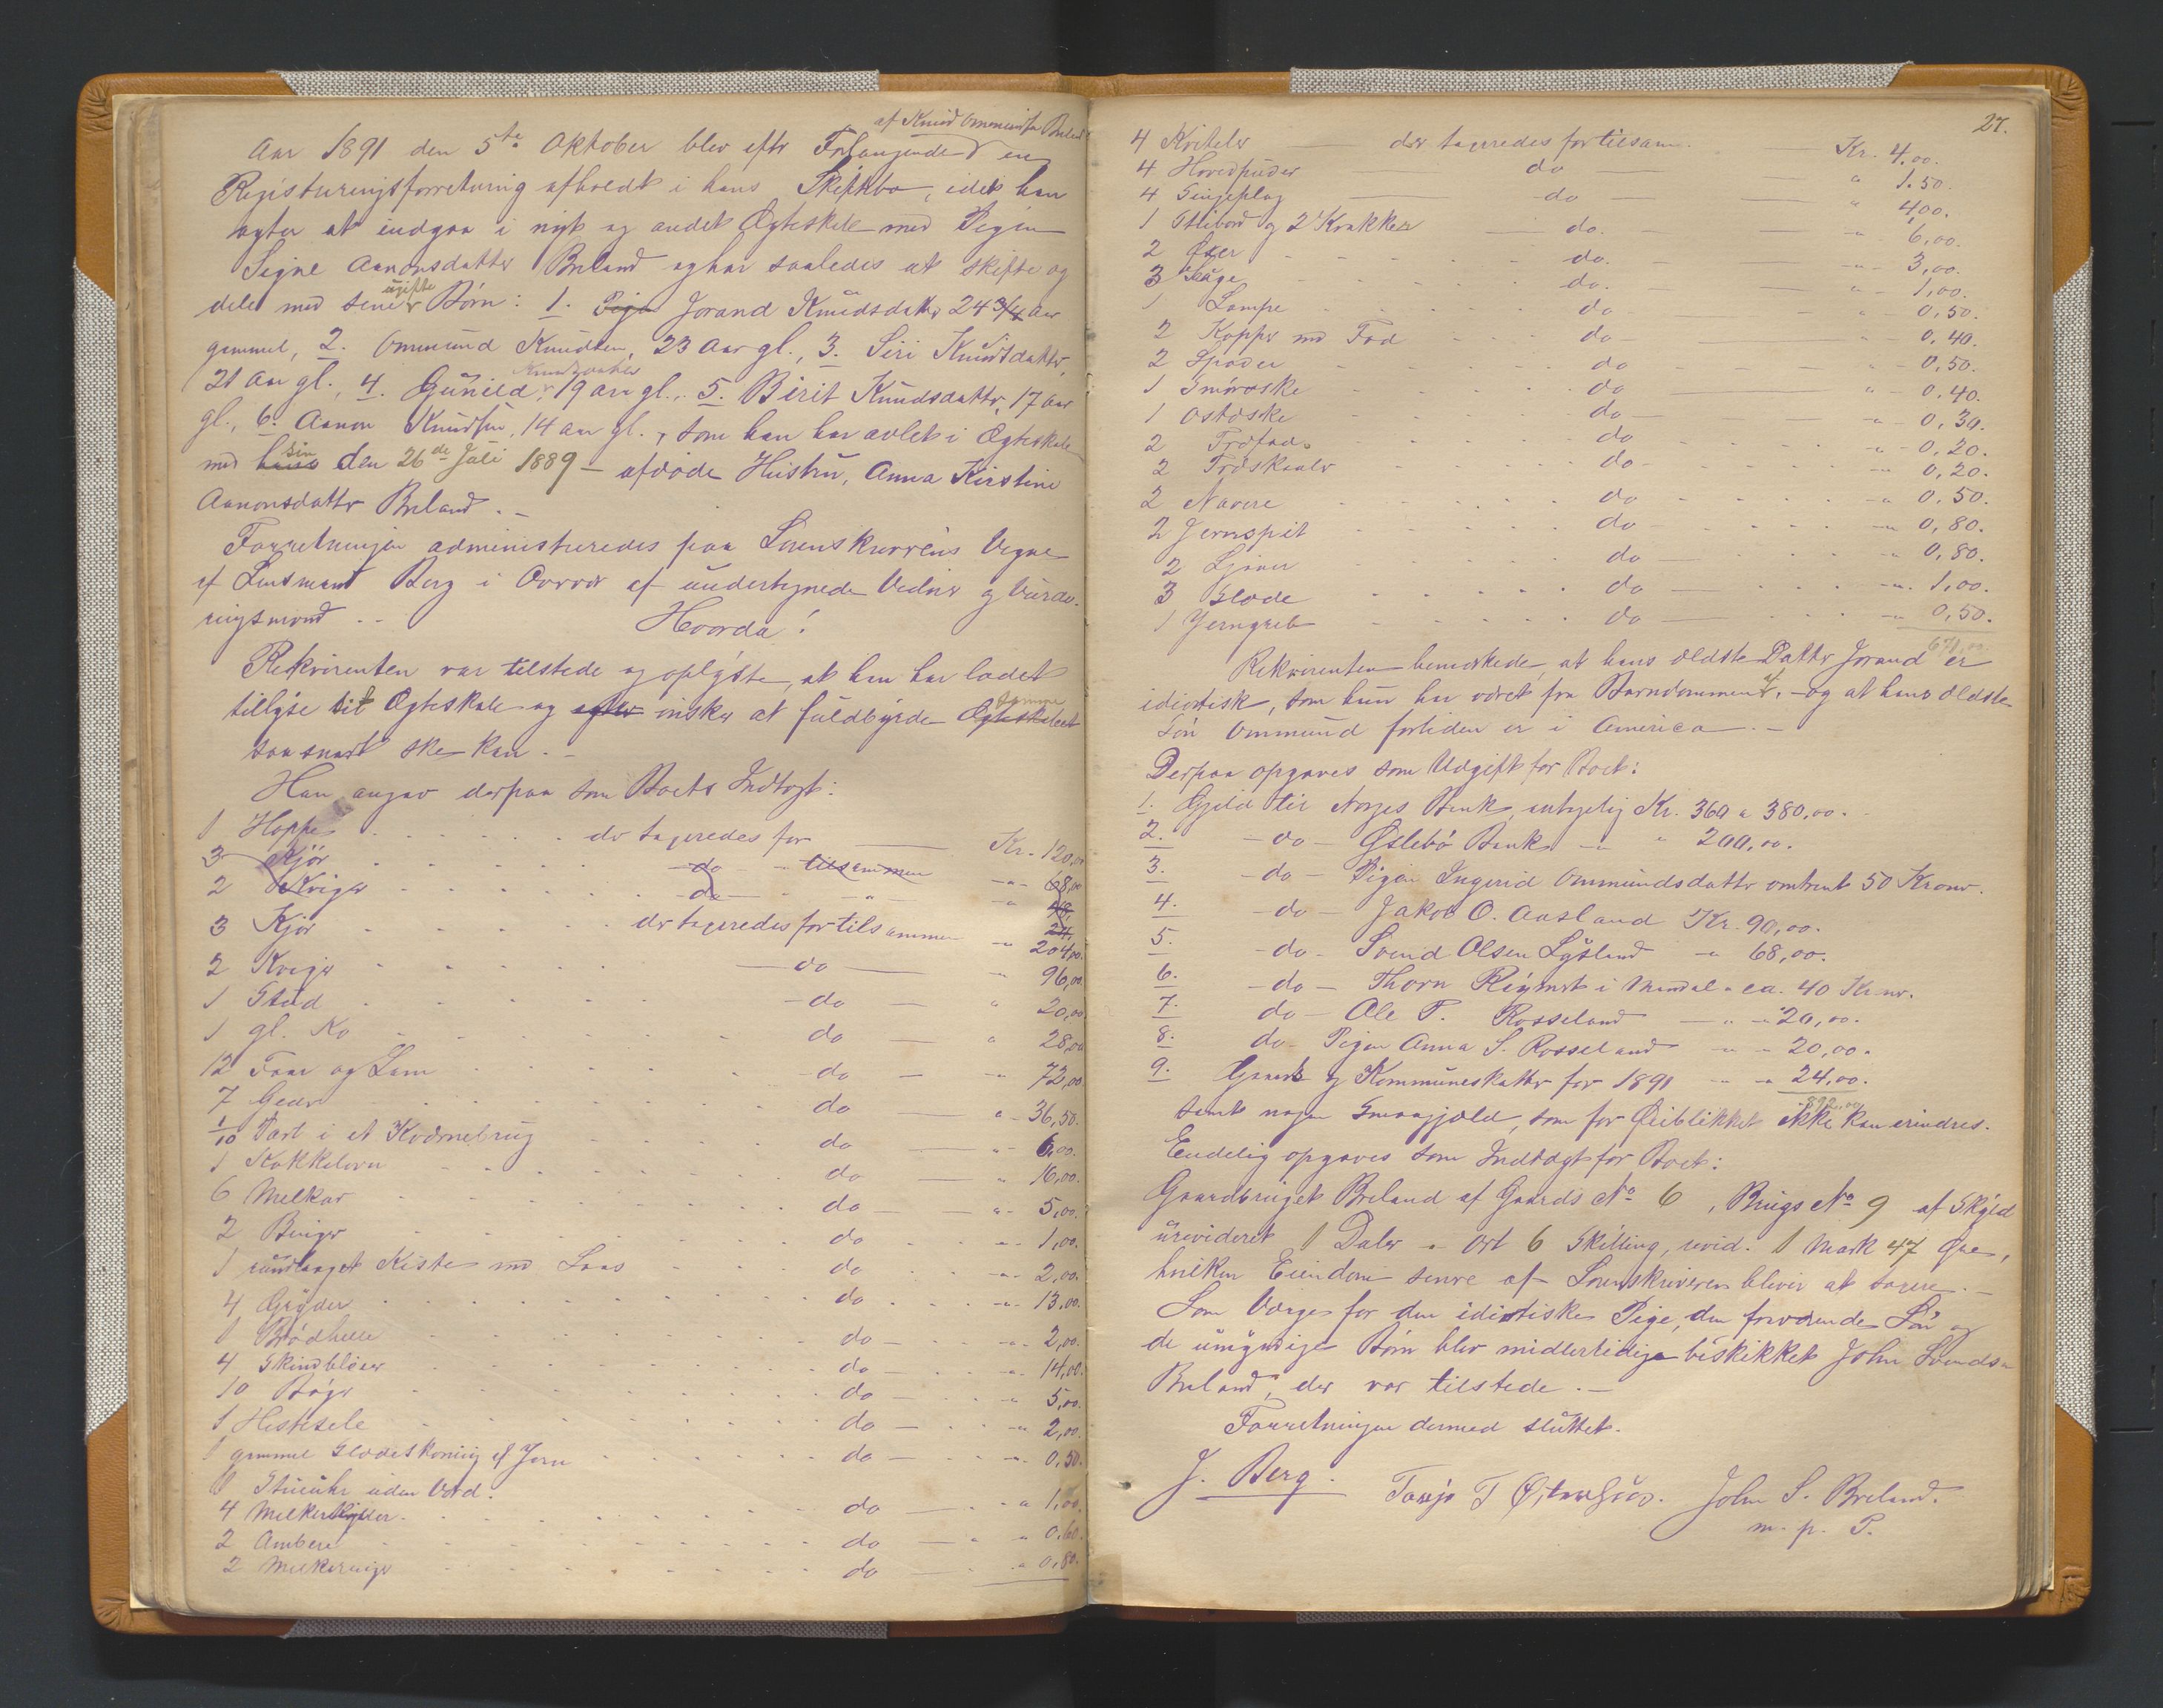 af Knud Ommundsen Breland
Aar 1891 den 5te Oktober blev efter Forlangende en
Registreringsforretning afholdt i hans Skiftebo, idet han
agter at indgaa i nyt og andet Ægteskab med Pigen
Signe Aanonsdatter Breland og har saaledes at skifte og
dele med sine ugifte Børn: 1. Pige Jorand Knudsdatter 24 3/4 Aar
gammel, 2. Ommund Knudsen, 23 Aar gl., 3. Siri Knudsdatter,
21 Aar gl., 4. Gunild Knudsdatter 19 Aar gl., 5. Birit Knudsdatter, 17 Aar
gl., 6. Aanon Knudsen, 14 Aar gl., som han har avlet i Ægteskab
med hans sin den 26de Juli 1889 – afdøde Hustru, Anna Kirstine
Aanonsdatter Breland. –
Forretningen administreredes paa Sorenskriverens Vegne
af Lensmand Berg i Overvær af undertegnede Vidner og Vurde-
ringsmænd. –
Hvorda!
Rekvirenten var tilstede og oplyste, at han har ladet
tillyse til Ægteskab og agter ønsker at fuldbyrde Ægteskabet samme
saa snart ske kan. –
Han angav derpaa som Boets Indtægt:
1 Hoppe der taxeredes for Kr. 120,00
3 Kjør do tilsammen " 68,00
2 Kviger do " 48,
3 Kjør der taxeredes for tilsammen " 204,00.
2 Kviger do " 96,00
1 Stud do " 20,00
1 gl. Ko do " 28,00
12 Faar og Lam do " 72,00
7 Geder do " 36,50.
1/10 Part i et Kværnebrug do " 6,00.
1 Kakkelovn do " 16,00.
6 Melkar do " 5,00.
2 Binger do " 1,00.
1 rundlaaget Kiste med Laas do " 2,00.
4 Gryder do " 13,00.
1 Brødhelle do " 2,00.
4 Skindbløier do " 14,00.
10 Bøger do " 5,00.
1 Hestesele do " 2,00.
1 gammel Slædeskoning af Jern do " 0,50.
1 Stueuhr uden Værd.
4 Melkerkjiller do " 1,00.
2 Ambere do " 0,60.
2 Melkeringer do " 0,80.
27.
4 Kviteler der taxeredes for tilsam. Kr. 4,00.
4 Hovedpuder do " 1.50.
4 Sengeplag do " 4,00.
1 Slibord og 2 Krakker do. " 6,00.
2 Øxer do. " 3,00.
3 Sauge do. " 1,00.
1 Lampe do " 0,50.
2 Kopper med Fad do " 0,40.
2 Spader do " 0,50.
1 Smøræske do " 0,40.
1 Ostæske do " 0,30.
2 Træfad do " 0,20.
2 Træskaaler do " 0,20.
2 Navere do " 0,50.
2 Jernspit do " 0,80.
2 Ljaaer do " 0,80.
3 Slæde do " 1,00.
1 Jerngreb do " 0,50.
671,00
Rekvirenten bemærkede, at hans ældste Datter Jorand er
idiotisk, som hun har været fra Barndommen af, – og at hans ældste
Søn Ommund fortiden er i America. –
Derpaa opgaves som Udgift for Boet:
1. Gjeld til Norges Bank, antagelig Kr. 360 a 380,00.
2. – do – Øslebø Bank " " 200,00.
3. – do – Pigen Ingerid Ommundsdatter omtrent 50 Kroner.
4. – do – Jakob O. Aasland Kr. 90,00.
5. – do – Svend Olsen Lysland " 68,00.
6. – do – Thorn Reymert i Mandal " ca. 40 Kroner.
7. do – Ole T. Rosseland " " 20,00.
8. do – Pigen Anna S. Rosseland " " 20,00.
9. Gaards og Kommuneskatter for 1891 " " 24,00.
892,00
samt nogen Smaagjæld, som for Øieblikket ikke kan erindres.
Endelig opgaves som Indtægt for Boet:
Gaardbruget Breland af Gaards No 6, Brugs No 9 af Skyld
urevideret 1 Daler " Ort 6 Skilling, revid. 1 Mark 47 Øre,
hvilken Eiendom senere af Sorenskriveren bliver at taxere. –
Som Værge for den idiotiske Pige, den fraværende Søn og
de umyndige Børn blev midlertidige beskikket John Svendsen
Breland, der var tilstede. –
Forretningen dermed sluttet.
J. Berg. Tarjei T John S. Breland.
m. p. P.